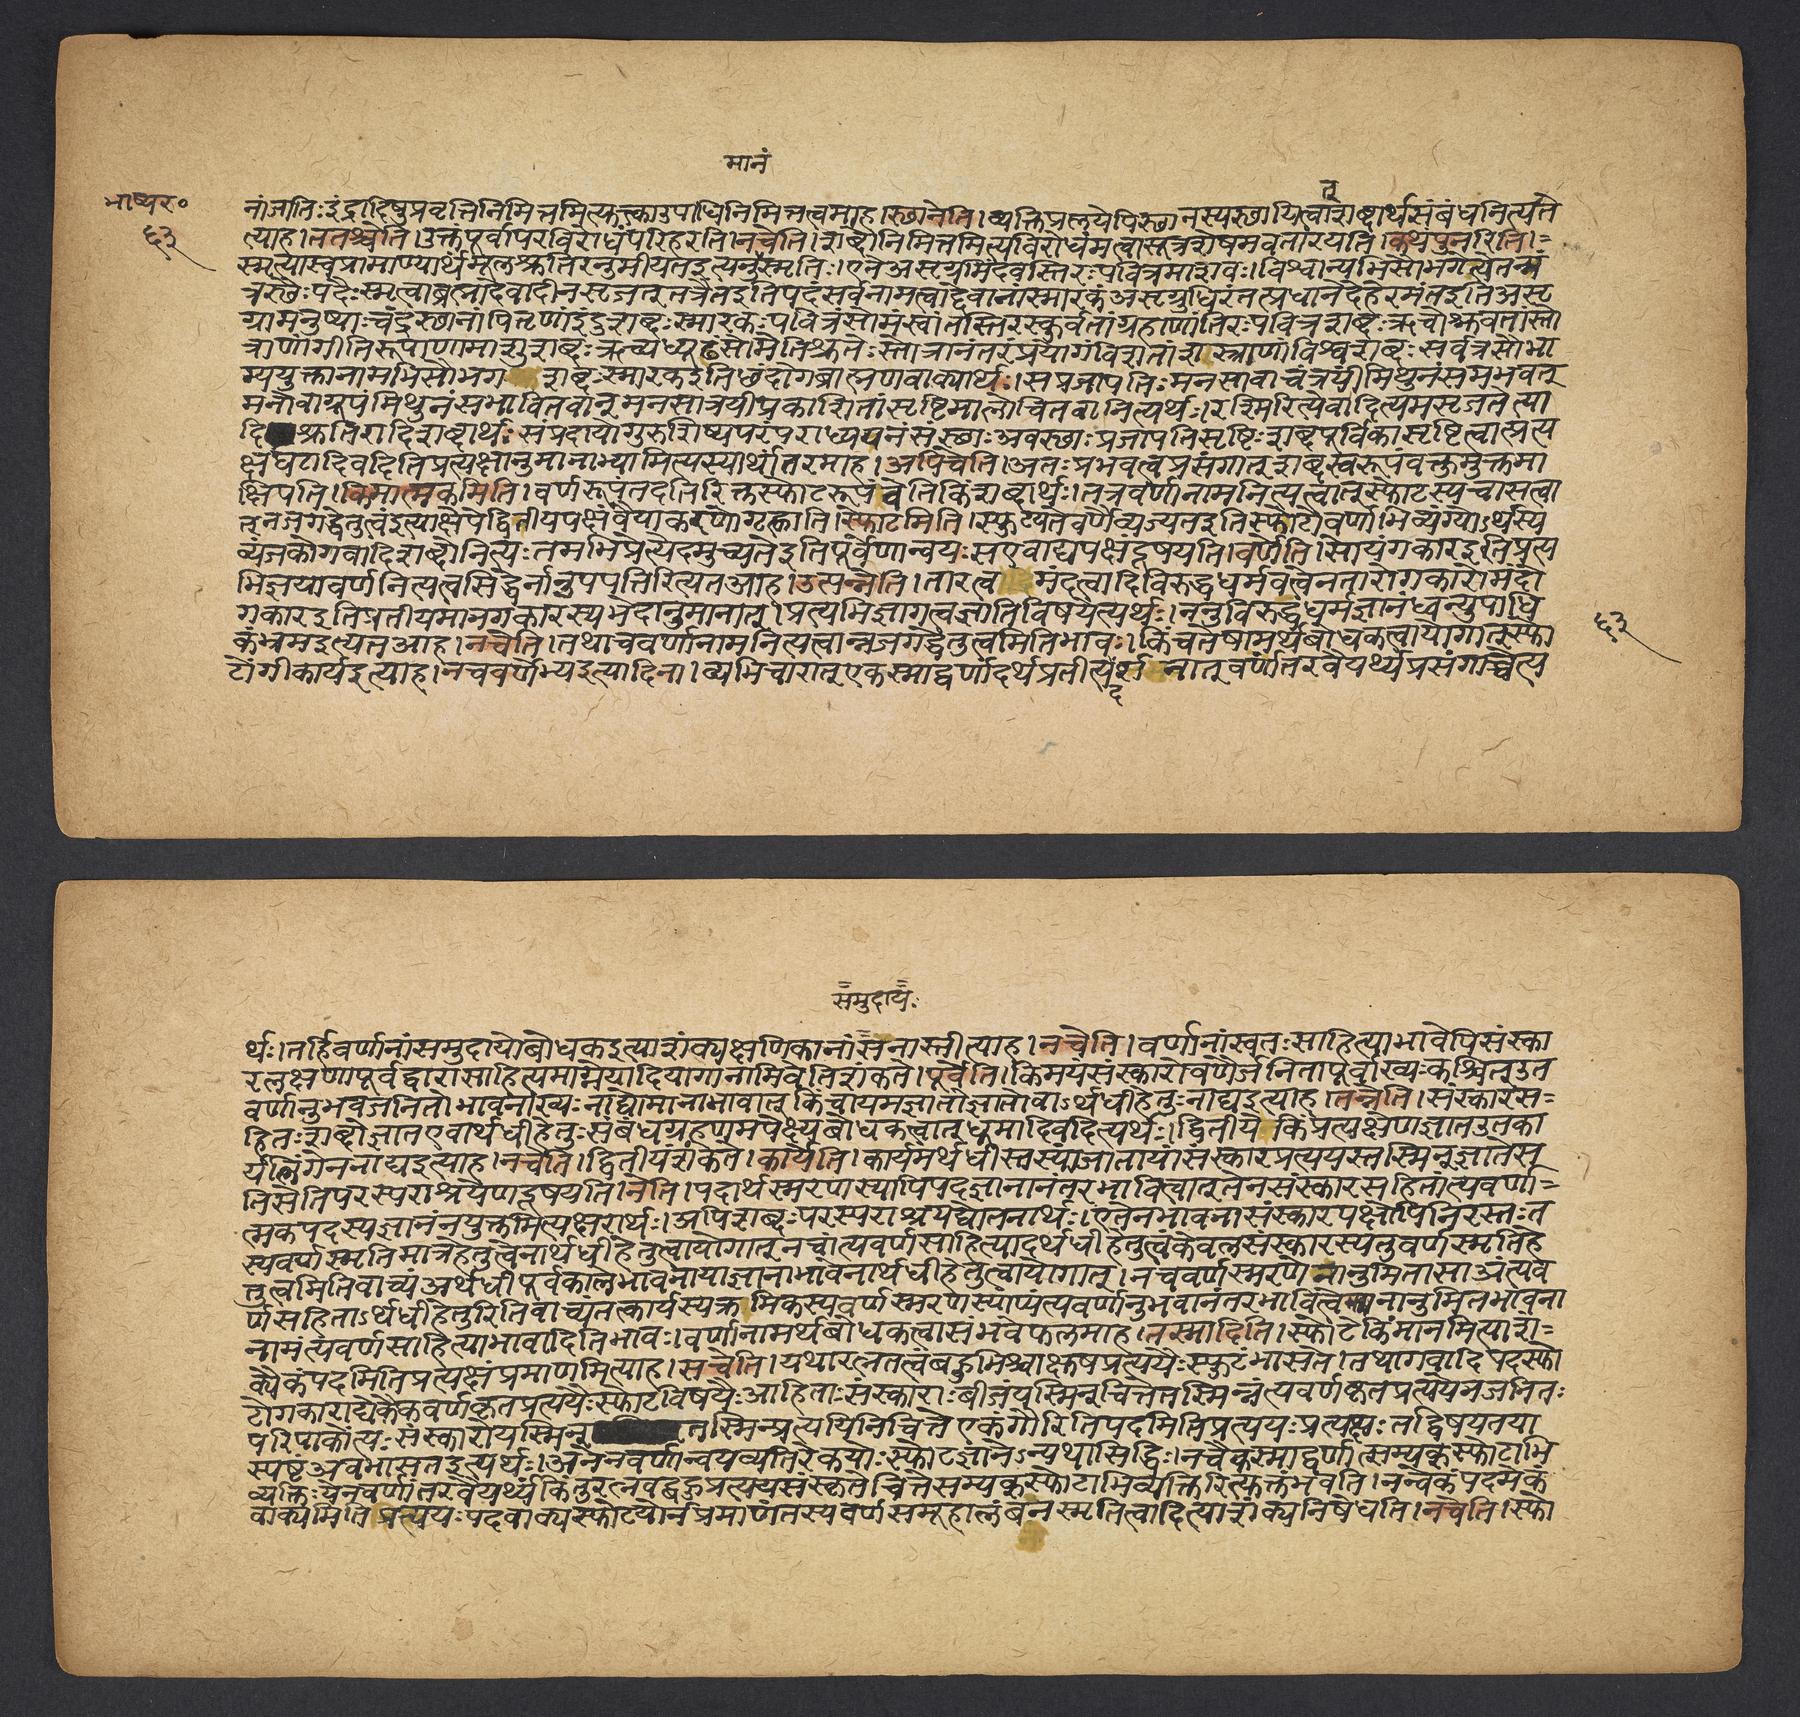 मानं
भाष्यर०
६३
त्
नांजातिः इंद्रादिषुप्रवृत्तिनिमित्तमित्युक्त्काउपाधिनिमित्तत्वमाहास्थानेति।व्यक्तिप्रलयेपिस्थानस्यस्थायित्वाशब्दार्थसंबंधनित्यते
त्याह।ततश्चेति।उक्तंपूर्वापरविरोधंपरिहरति।नचेति।शब्दोनिमित्तमित्यविरोधंमत्वासूत्रशेषमवतारयति।कथंपुनरिति।=
स्मृत्यास्वप्रामाण्यार्थंमूलश्रुतिरनुमीयतइत्यनुस्मृतिः।एतेअसृग्रमिंदवस्तिरःपवित्रमाशवः।विश्वान्यभिसौभगेत्येतन्मं
त्रस्थैःपदैःस्मृत्वाब्रह्मादेवादीनसृजत्तत्रैतइतिपदंसर्वनामत्वाद्देवानांस्मारकंअसृग्रुधिरंतत्प्रधानेदेहेरमंतइतिअसृ
ग्रामनुष्याःचंद्रस्थानांपितॄणांइंदुशब्दःस्मारकःपवित्रंसोमंस्वांतस्तिरस्कुर्वतांग्रहाणांतिरःपवित्रशब्दःऋचोश्नुवतांस्तो
त्राणांगीतिरूपाणामाशुशब्दःऋच्यध्यूढंसामेतिश्रुतेःस्तोत्रानंतरंप्रयोगंविशतांशस्त्राणांविश्वशब्दःसर्वत्रसौभा
ग्ययुक्तानामभिसौभगशब्दःस्मारकइतिछंदोगब्राह्मणवाक्यार्थः।सप्रजापतिःमनसावाचंत्रयींमिथुनंसमभवत्
मनोवाग्रूपंमिथुनंसंभावितवान्मनसात्रयीप्रकाशितांसृष्टिमालोचितवानित्यर्थः।रश्मिरित्येवादित्यमसृजतेत्या
दिश्रुतिरादिशब्दार्थःसंप्रदायोगुरुशिष्यपरंपराध्ययनंसंस्थाःअवस्थाःप्रजापतिसृष्टिःशब्दपूर्विकासृष्टित्वात्प्रत्य
क्षघटादिवदितिप्रत्यक्षानुमानाभ्यामित्यस्यार्थांतरमाह।अपिचेति।अतःप्रभवत्वप्रसंगात्शब्दस्वरूपंवक्तुमुक्तमा
क्षिपति।किमात्मकमिति।वर्णरूपंतदतिरिक्तस्फोटरूपंवेतिकिंशब्दार्थः।तत्रवर्णानामनित्यत्वात्स्फोटस्यचासत्वा
त्नजगद्धेतुत्वंइत्याक्षेपेद्वितीयपक्षंवैयाकरणोगृह्णाति।स्फोटमिति।स्फुट्यतेवर्णैर्व्यज्यतइतिस्फोटोवर्णाभिव्यंग्योऽर्थस्य
व्यंजकोगवादिशब्दोनित्यःतमभिप्रेत्येदमुच्यतेइतिपूर्वेणान्वयःसएवाद्यपक्षंदूषयति।वर्णेति।सोयंगकारइतिप्रत्य
भिज्ञयावर्णनित्यत्वसिद्धेर्नानुपपत्तिरित्यतआह।उत्पन्नेति।तारत्वमंदत्वादिविरुद्धधर्मवत्वेनतारोगकारोमंदो
गकारइतिप्रतीयमानगकारस्यभेदानुमानात्।प्रत्यभिज्ञागत्वजातिविषयेत्यर्थः।ननुविरुद्धधर्मज्ञानंध्वन्युपाधि
कंभ्रमइत्यतआह।नचेति।तथाचवर्णानामनित्यत्वान्नजगद्धेतुत्वमितिभावः।किंचतेषामर्थबोधकत्वायोगात्स्फो
टोंगीकार्यइत्याह।नचवर्णेभ्यइत्यादिना।व्यभिचारात्एकस्माद्वर्णादर्थप्रतीत्यदर्शनात्वर्णांतरवैयर्थ्यप्रसंगाच्चेत्य
६३
समुदायः
र्थः।तर्हिवर्णानांसमुदायोबोधकइत्याशंक्यक्षणिकानांसनास्तीत्याह।नचेति।वर्णानांस्वतःसाहित्याभावेपिसंस्का
रलक्षणापूर्वद्वारासाहित्यमाग्नेयादियागानामिवेतिशंकते।पूर्वेति।किमयंसंस्कारोवर्णैर्जनितापूर्वाख्यःकश्चित्उत
वर्णानुभवजनितोभावनाख्यःनाद्योमानाभावात्किंचायमज्ञातोज्ञातोवाऽर्थधीहेतुःनाद्यइत्याह।तन्नेति।संस्कारस=
हितःशब्दोज्ञातएवार्थधीहेतुःसंबंधग्रहणमपेक्ष्यबोधकत्वात्धूमादिवदित्यर्थः।द्वितीयेकिंप्रत्यक्षेणज्ञातउतका
र्यलिंगेननाद्यइत्याह।नचेति।द्वितीयंशंकते।कार्येति।कार्यमर्थधीस्तस्यांजातायांसंस्कारप्रत्ययस्तस्मिन्ज्ञातेस
तिसेतिपरस्पराश्रयेणदूषयति।नेति।पदार्थस्मरणस्यापिपदज्ञानानंतरभावित्वात्तेनसंस्कारसहितांत्यवर्णा=
त्मकपदस्यज्ञानंनयुक्तमित्यक्षरार्थः।अपिशब्दःपरस्पराश्रयद्योतनार्थः।एतेनभावनासंस्कारपक्षोपिनिरस्तःत
स्यवर्णस्मृतिमात्रहेतुत्वेनार्थधीहेतुत्वायोगात्नचांत्यवर्णसाहित्यादर्थधीहेतुत्वंकेवलसंस्कारस्यतुवर्णस्मृतिहे
तुत्वमितिवाच्यंअर्थधीपूर्वकालेभावनायाज्ञानाभावेनार्थधीहेतुत्वायोगात्।नचवर्णस्मरणेनानुमितासाअंत्यव
र्णसहिताऽर्थधीहेतुरितिवाच्यंतत्कार्यस्यक्रमिकस्यवर्णस्मरणस्याप्यंत्यवर्णानुभवानंतरभावित्वेनतेनानुमितभावना
नामंत्यवर्णसाहित्याभावादितिभावः।वर्णानामर्थबोधकत्वासंभवेफलमाह।तस्मादिति।स्फोटेकिंमानमित्याशं=
क्यैकंपदमितिप्रत्यक्षंप्रमाणमित्याह।सचेति।यथारत्नतत्वंबहुभिश्चाक्षुषप्रत्ययैःस्फुटंभासतेतथागवादिपदस्फो
टोगकाराद्येकैकवर्णकृतप्रत्ययैःस्फोटविषयैःआहिताःसंस्काराःबीजंयस्मिन्चित्तेतस्मिन्नंत्यवर्णकृतप्रत्ययेनजनितः
परिपाकोंत्यःसंस्कारोयस्मिन्तस्मिन्प्रत्ययिनिचित्तेएकंगौरितिपदमितिप्रत्ययःप्रत्यक्षःतद्विषयतया
स्पष्टंअवभासतइत्यर्थः।अनेनवर्णान्वयव्यतिरेकयोःस्फोटज्ञानेऽन्यथासिद्धिः।नचैकस्माद्वर्णात्सम्यक्स्फोटाभि
व्यक्तिःयेनवर्णांतरवैयर्थ्यंकिंतुरत्नवद्बहुप्रत्ययसंस्कृतेचित्तेसम्यक्स्फोटाभिव्यक्तिरित्युक्तंभवति।नन्वेकंपदमेकं
वाक्यमितिप्रत्ययःपदवाक्यस्फोटयोर्नप्रमाणंतस्यवर्णसमूहालंबनस्मृतित्वादित्याशंक्यनिषेधति।नचेति।स्फो